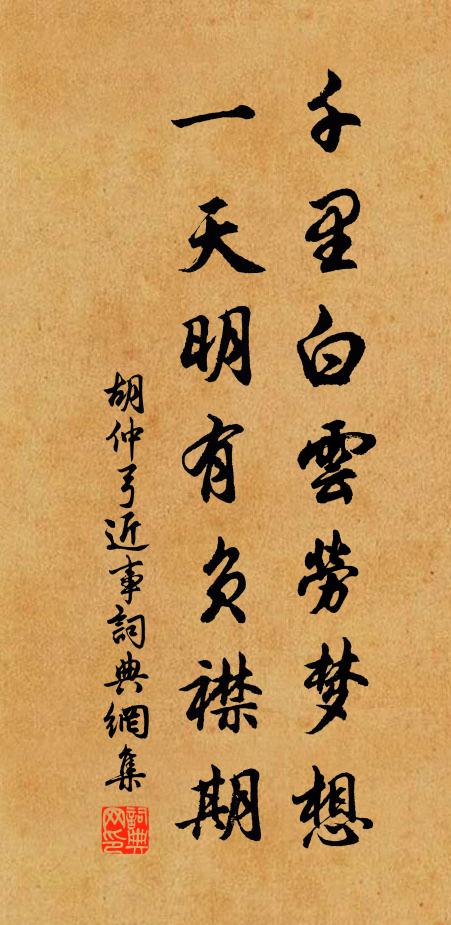 千里白雲勞梦想
一天明有负襟期
胡仲弓近事詞典網集
詞典網印